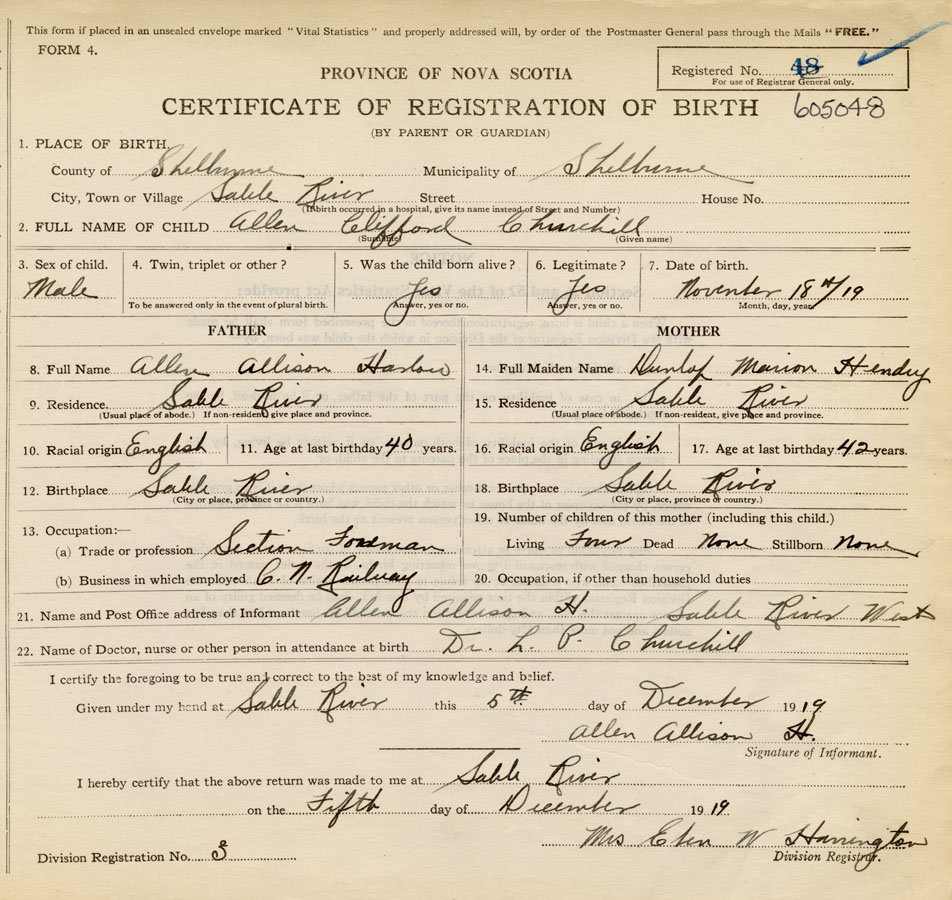 This form if placed in an unsealed envelope marked "Vital Statistics" and properly addressed will, by order of the Postmaster General pass through the Mails "FREE."
FORM 4.
Registered No. 48
For use of Registrar General only.
PROVINCE OF NOVA SCOTIA
CERTIFICATE OF REGISTRATION OF BIRTH 605048
(BY PARENT OR GUARDIAN)
1. PLACE OF BIRTH.
County of Shelburne Municipality of Shelburne
City, Town or Village Sable River Street House No.
(If birth occurred in a hospital, give its name instead of Street and Number)
2. FULL NAME OF CHILD Allen Clifford Churchill
(Surname) (Given name)
3. Sex of child. 4. Twin, triplet or other? 5. Was the child born alive? 6. Legitimate? 7. Date of birth.
Male Yes Yes November 18th/19
To be answered only in the event of plural birth. Answer, yes or no. Answer, yes or no. Month, day, year
FATHER MOTHER
8. Full Name Allen Allison Harlow 14. Full Maiden Name Dunlop Marion Hendry
9. Residence Sable River 15. Residence Sable River
(Usual place of abode.) If non-resident, give place and province. (Usual place of abode.) If non-resident, give place and province.
10. Racial origin English 11. Age at last birthday 40 years. 16. Racial origin English 17. Age at last birthday 42 years.
12. Birthplace Sable River 18. Birthplace Sable River
(City or place, province or country.) (City or place, province or country.)
13. Occupation:— 19. Number of children of this mother (including this child.)
(a) Trade or profession Section Foreman Living Four Dead None Stillborn None
(b) Business in which employed C. N. Railway 20. Occupation, if other than household duties
21. Name and Post Office address of Informant Allen Allison H. Sable River West
22. Name of Doctor, nurse or other person in attendance at birth Dr. L. P. Churchill
I certify the foregoing to be true and correct to the best of my knowledge and belief.
Given under my hand at Sable River this 5th day of December 1919
Allen Allison H.
Signature of Informant.
I hereby certify that the above return was made to me at Sable River
on the Fifth day of December 1919
Mrs Eben W Harrington
Division Registration No. 3 Division Registrar.